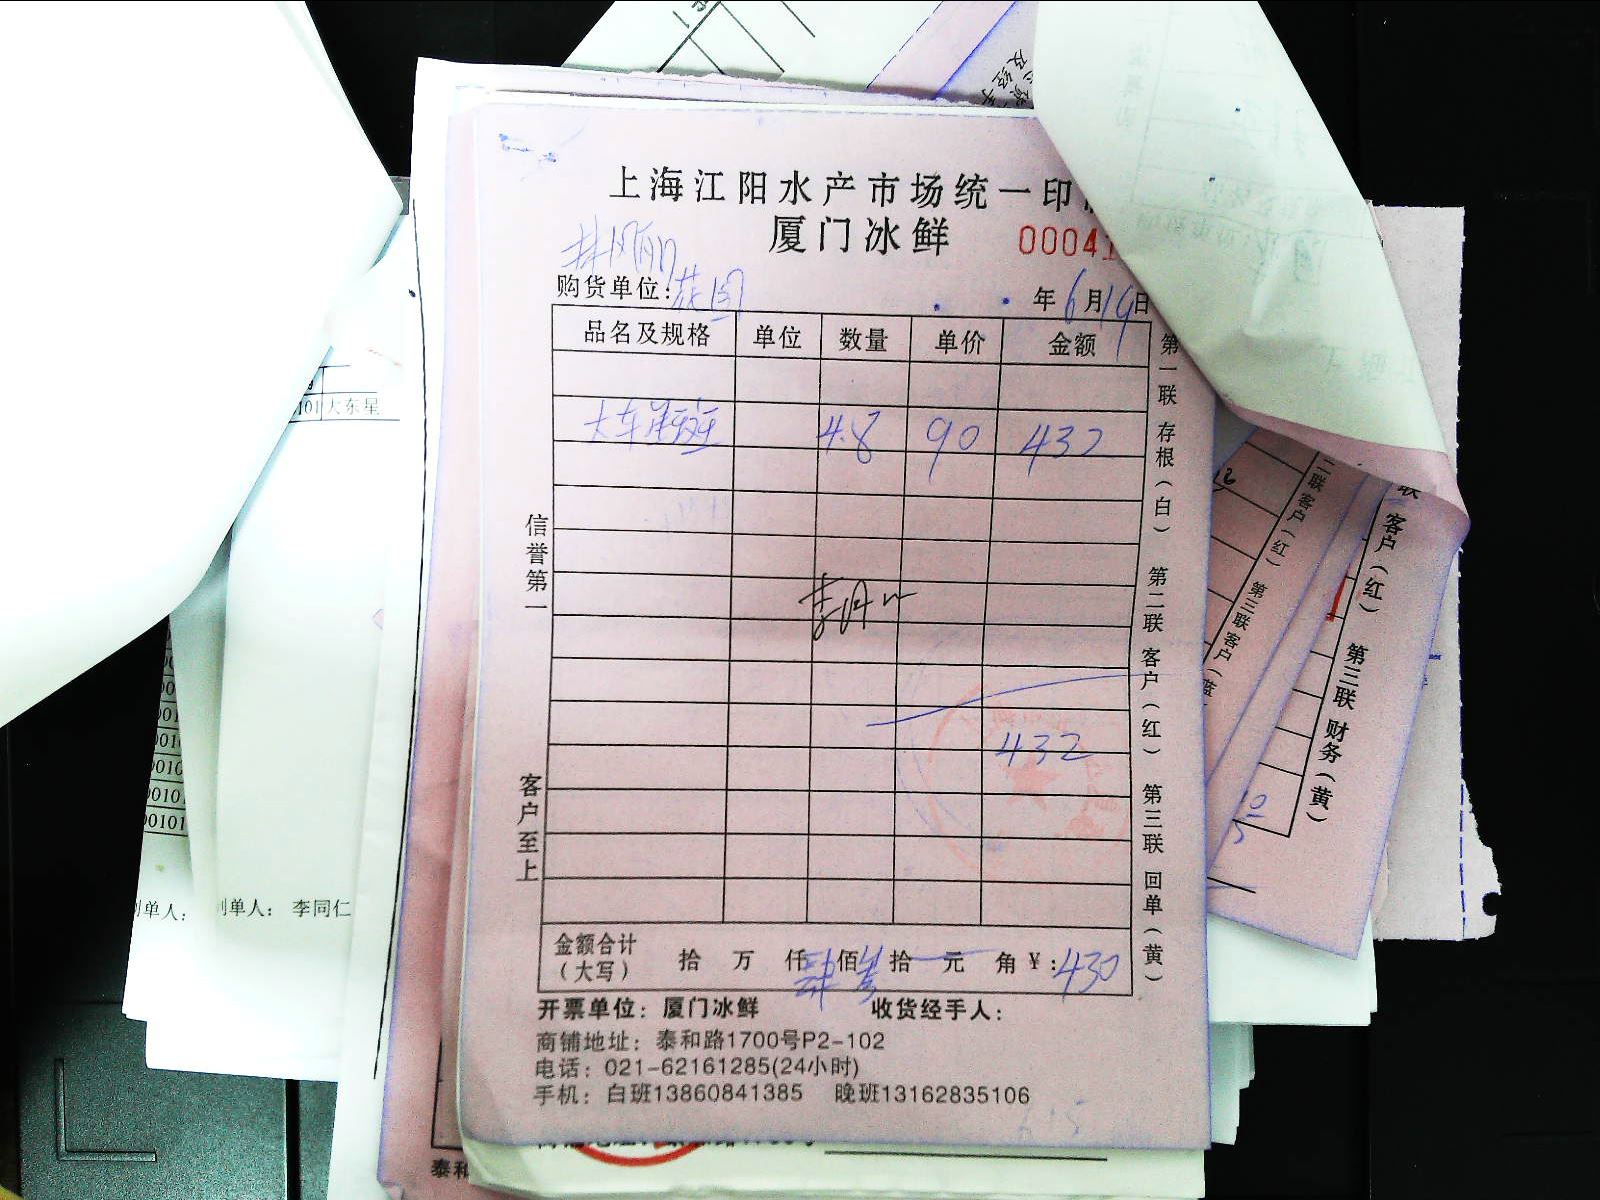 上海江阳水产市场统一印
厦门冰鲜
00041
购货单位:
年6月19日
品名及规格 单位 数量 单价 金额
大东星斑 4.8 90 432
432
信誉第一
客户至上
第一联 存根(白) 第二联 客户(红) 第三联 回单(黄)
金额合计(大写) 拾 万 仟 肆 佰 叁 拾 元 角 ¥:430
开票单位: 厦门冰鲜 收货经手人:
商铺地址: 泰和路1700号P2-102
电话: 021-62161285(24小时)
手机: 白班13860841385 晚班13162835106
101 大东星
制单人: 李同仁
二联客户(红) 第三联客户(蓝
联 客户(红) 第三联 财务(黄)
泰和